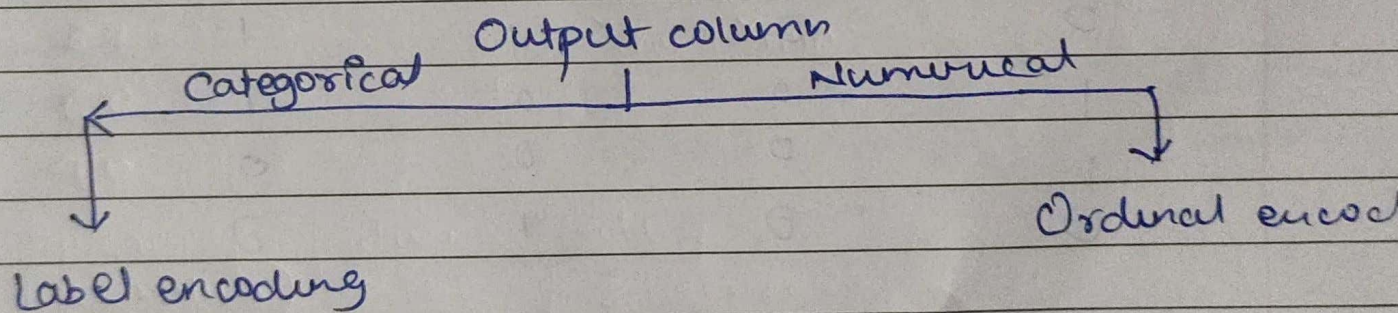 Output column
Categorical Numerical
Ordinal encod
Label encoding